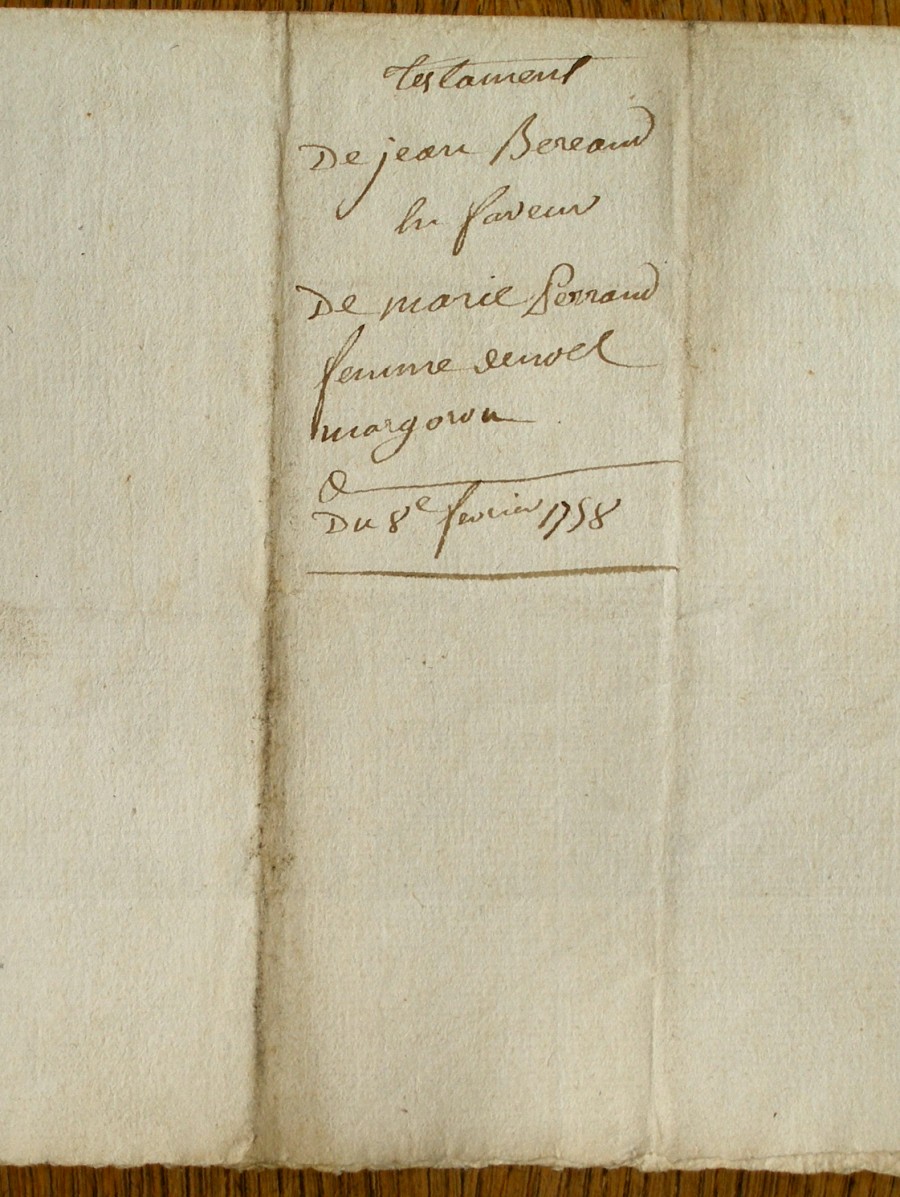 testament
De jean Bereaud
En faveur
De marie Perraud
femme de noel
margoron
Du 8e fevrier 1758